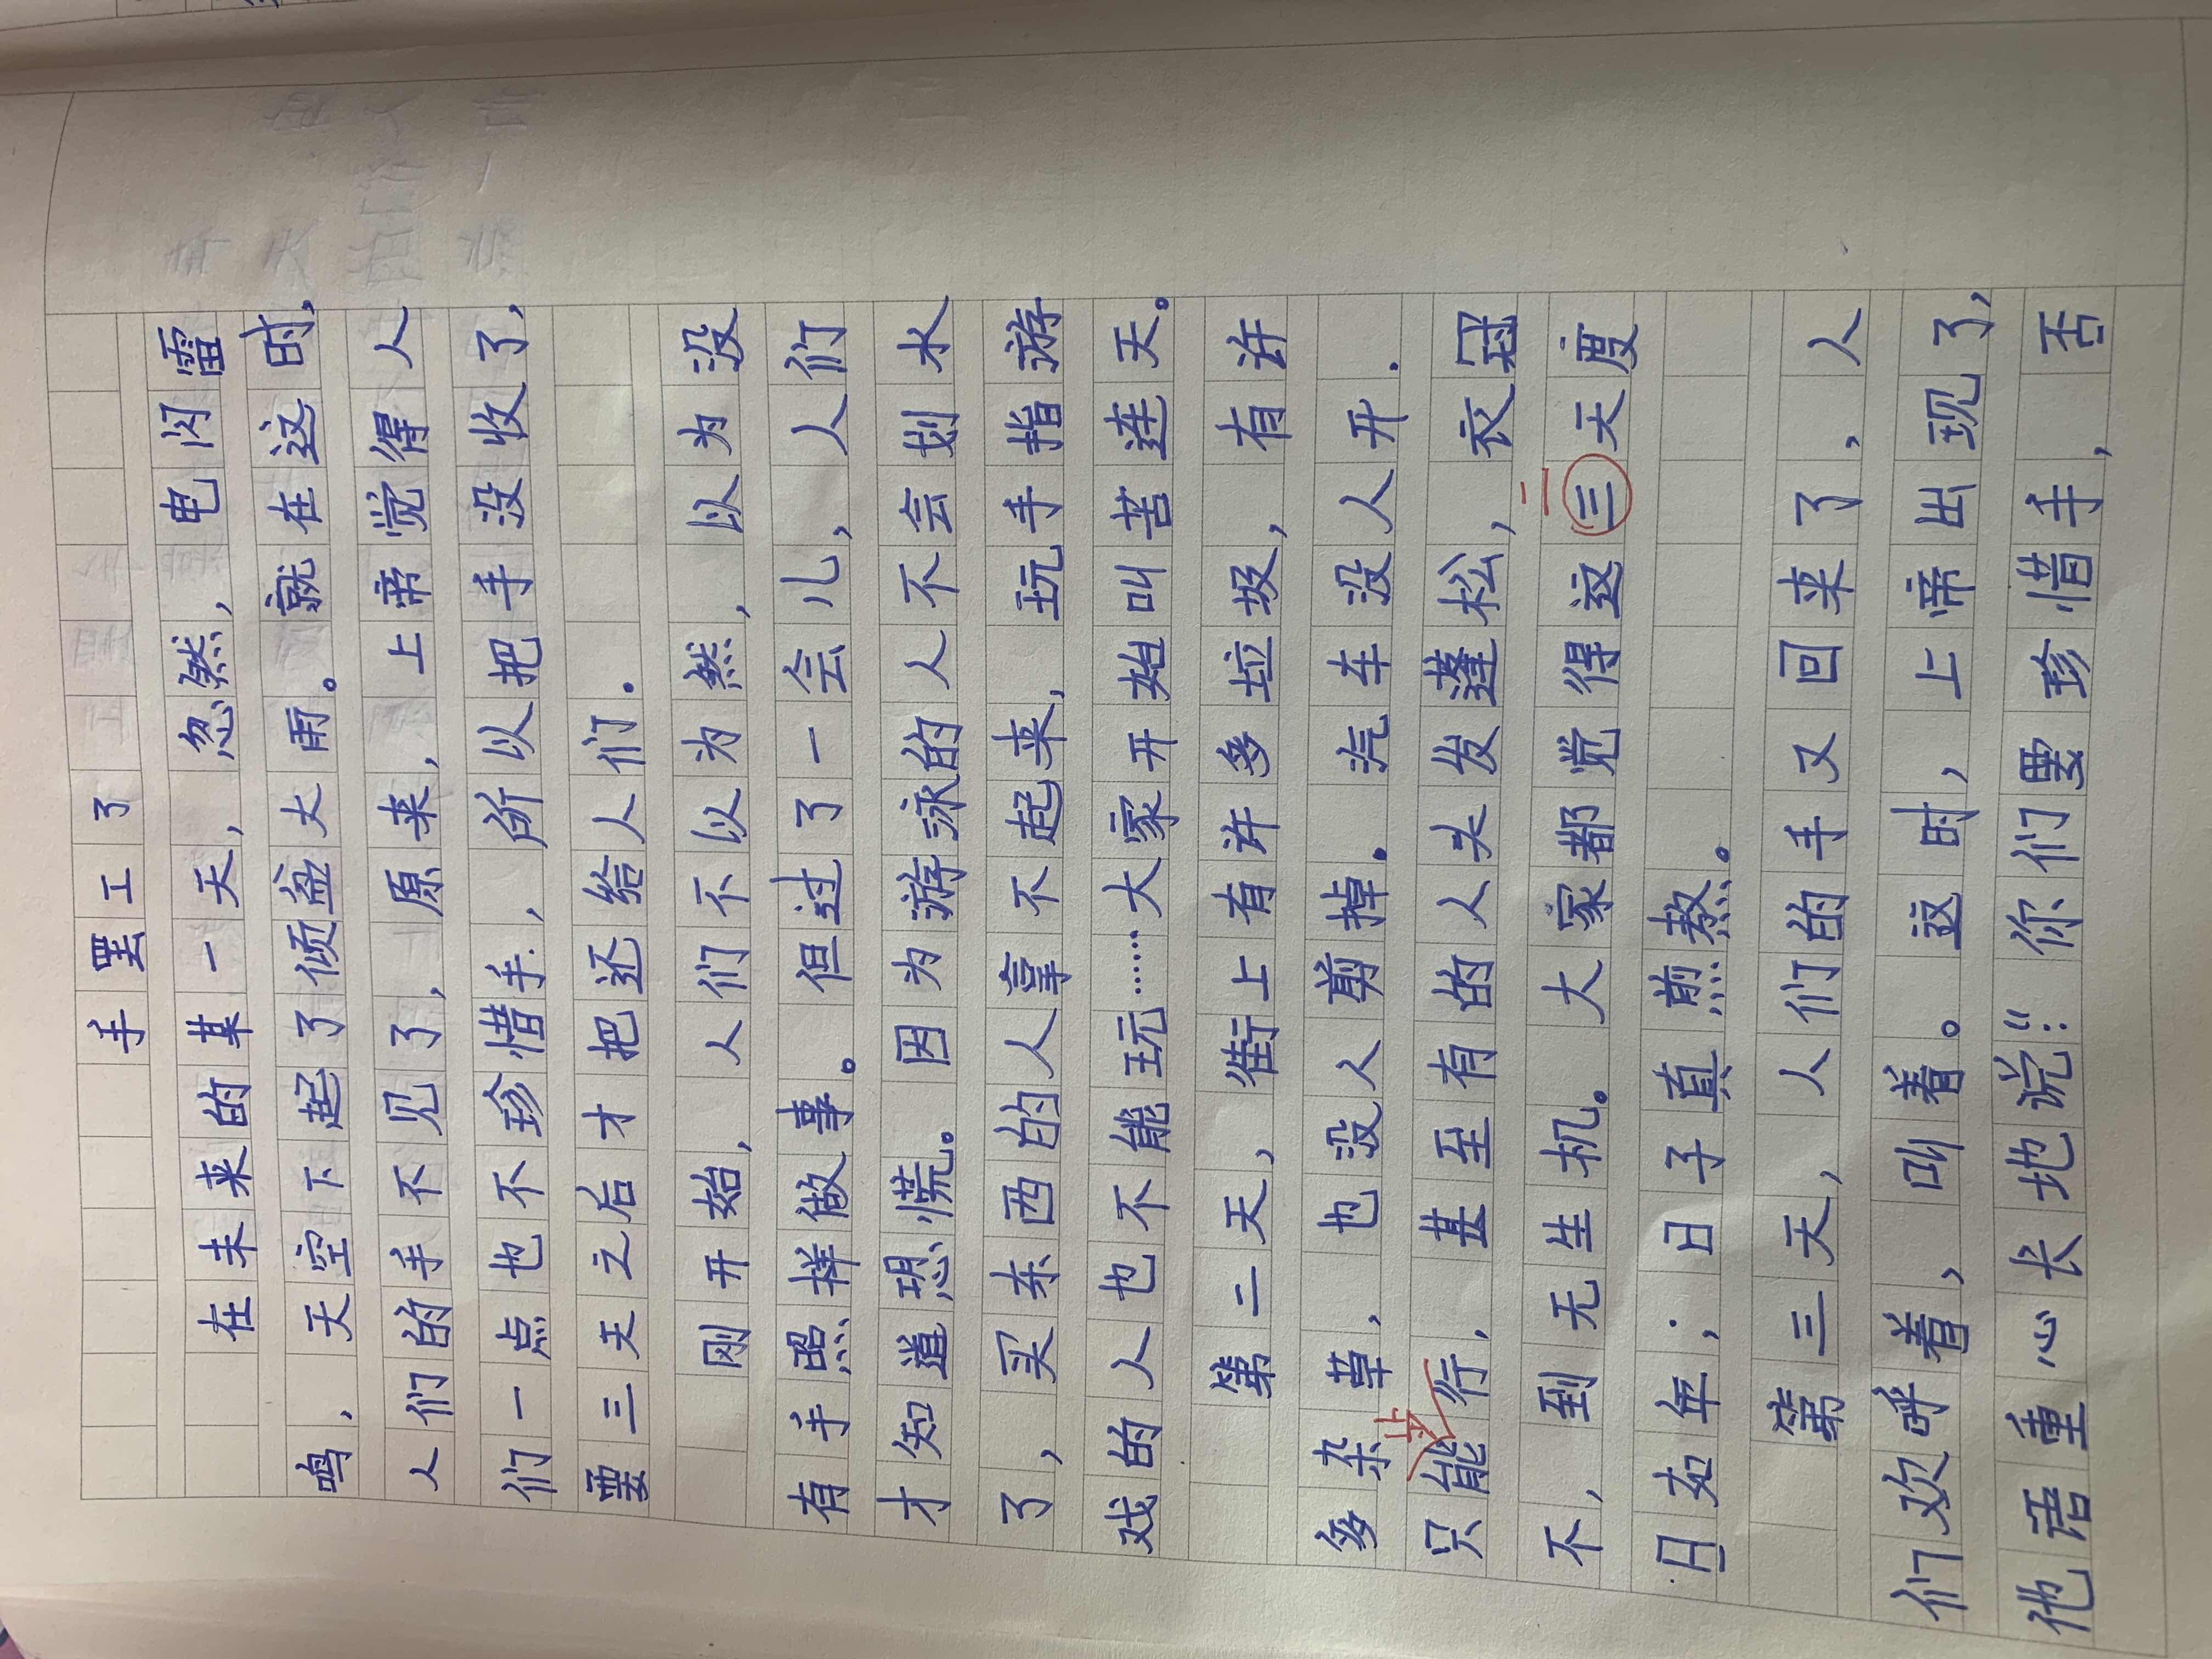 手罢工了
在未来的某一天，忽然，电闪雷
鸣，天空下起了倾盆大雨。就在这时，
人们的手不见了，原来，上帝觉得人
们一点也不珍惜手，所以把手没收了，
要三天之后才把还给人们.
刚开始，人们不以为然，以为没
有手照样做事。但过了一会儿，人们
才知道恐慌。因为游泳的人不会划水
了，买东西的人拿不起来，玩手指游
戏的人也不能玩……大家开始叫苦连天。
第二天，街上有许多垃圾，有许
多杂草，也没人剪掉。汽车没人开.
只能步行，甚至有的人头发蓬松，衣冠
不，到无生机。大家都觉得这三天度
二
日如年，日子真煎熬。
第三天，人们的手又回来了，人
们欢呼着，叫着。这时，上帝出现了，
他语重心长地说：“你们要珍惜手，否